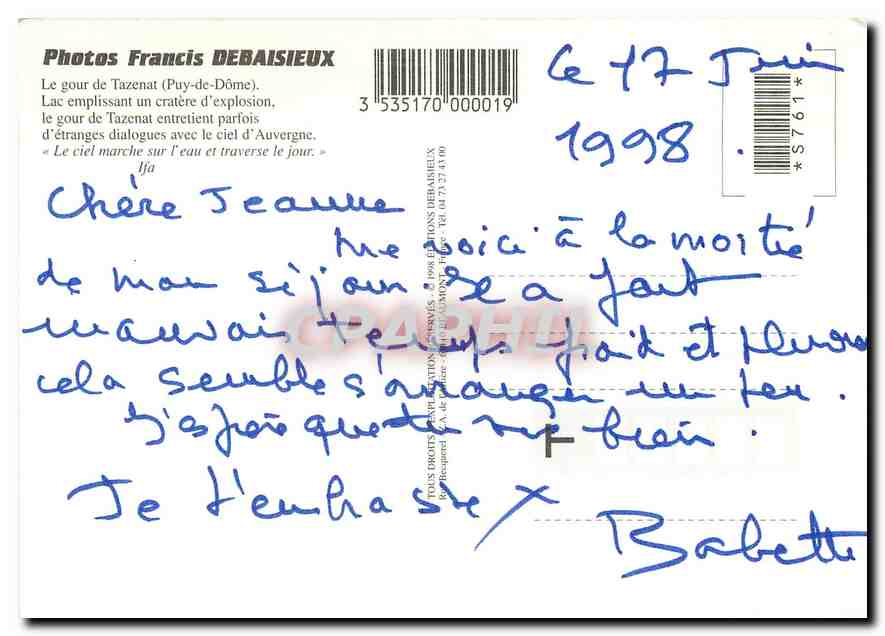 Photos Francis DEBAISIEUX
Le gour de Tazenat (Puy-de-Dôme).
Lac emplissant un cratère d'explosion,
le gour de Tazenat entretient parfois
d'étranges dialogues avec le ciel d'Auvergne.
« Le ciel marche sur l'eau et traverse le jour. »
Ifa
3 535170 000019
*S761*
Ce 17 Juin
1998.
Chère Jeanne
me voici à la moitié
de mon séjour. Il a fait
mauvais temps froid et pluvieux
cela semble s'arranger un peu.
J'espère que tu vas bien.
Je t'embrasse
Babette
TOUS DROITS D'EXPLOITATION RÉSERVÉS - © 1998 EDITIONS DEBAISIEUX
Rue Becquerel - Z.A. de - 63110 BEAUMONT - France - Tél. 04 73 27 43 00
CPAPHIL